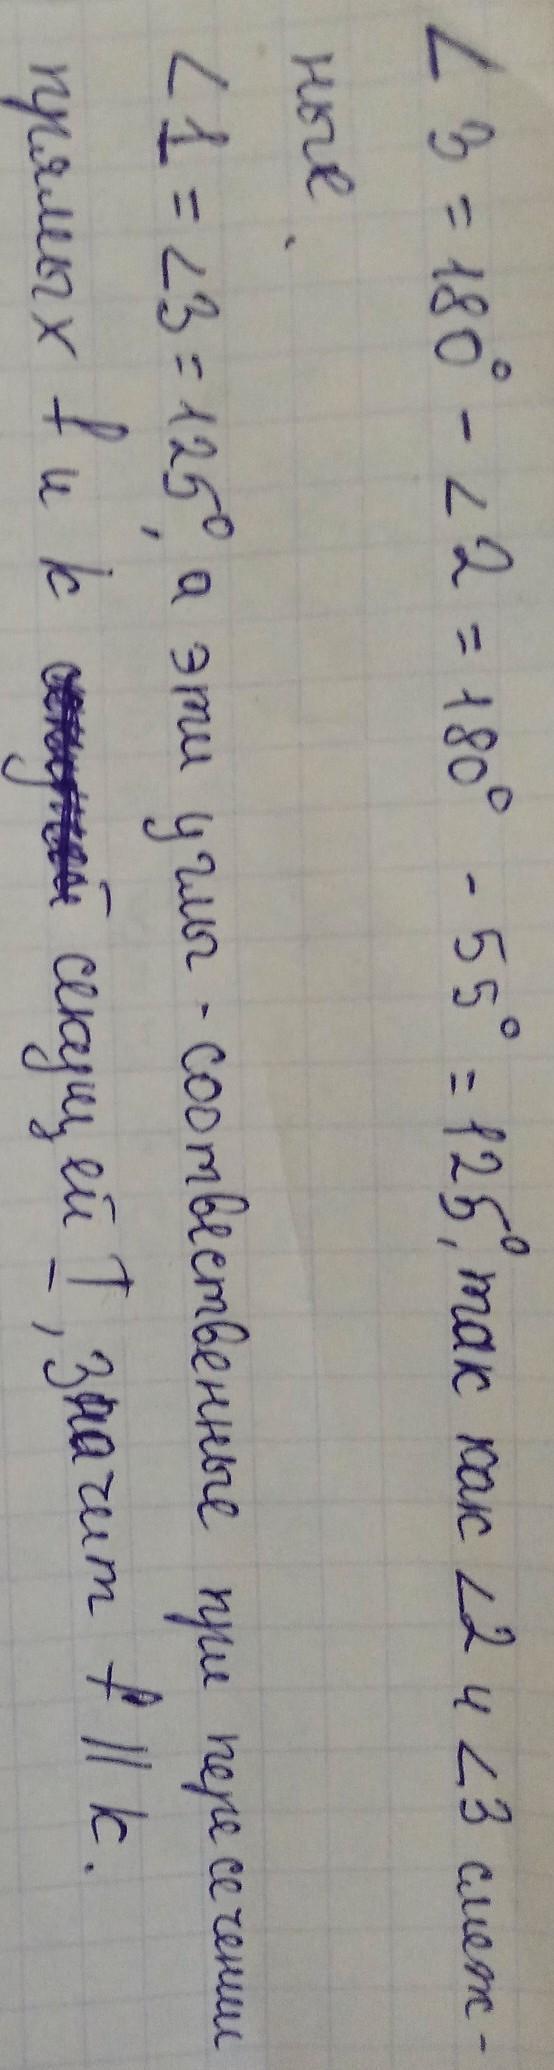 ∠3 = 180° - ∠2 = 180° - 55° = 125°, так как ∠2 и ∠3 смеж-
ные.
∠1 = ∠3 = 125°, а эти углы - соотвественные при пересечении
прямых f и k секущей T, значит f || k.